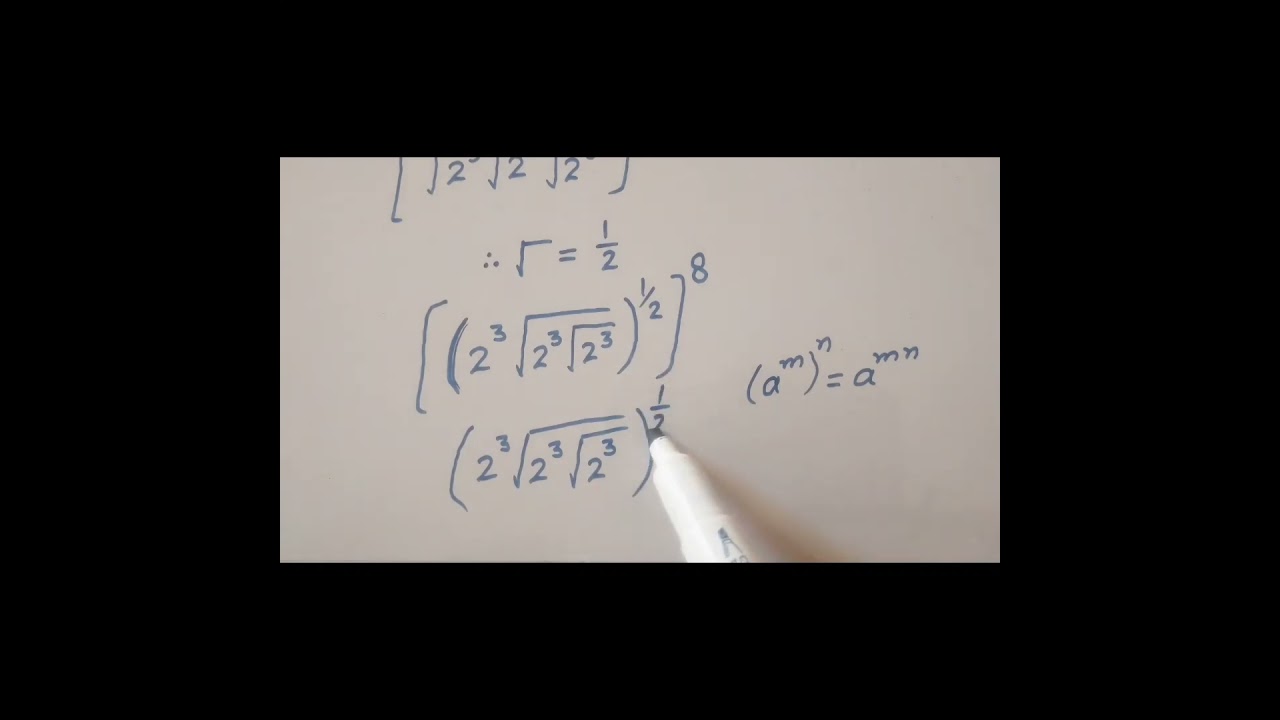 [√2³√2 √2³]
∴ √ = 1/2
[(2³√2³√2³)^1/2]^8
(a^m)^n = a^mn
(2³√2³√2³)^1/2